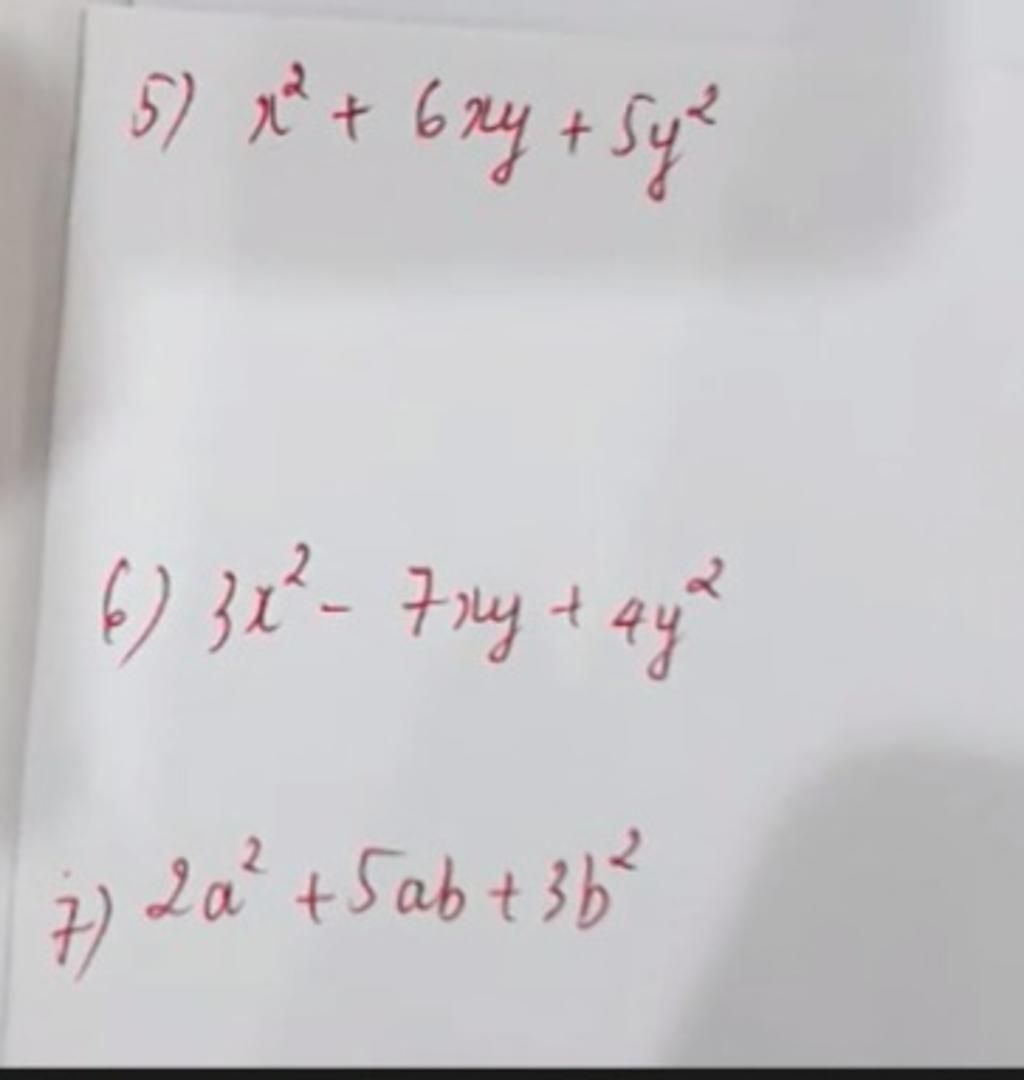 5) x² + 6xy + 5y²
6) 3x² - 7xy + 4y²
7) 2a² + 5ab + 3b²